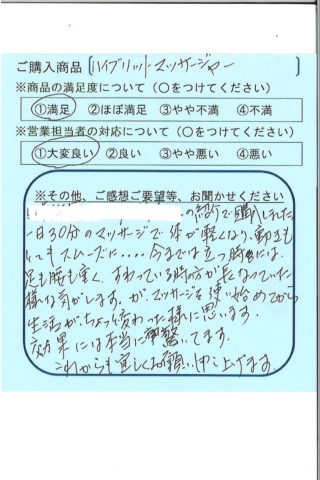 ご購入商品 ハイブリットマッサージャー
※商品の満足度について（○をつけてください）
①満足 ②ほぼ満足 ③やや不満 ④不満
※営業担当者の対応について（○をつけてください）
①大変良い ②良い ③やや悪い ④悪い
※その他、ご感想ご要望等、お聞かせください
の紹介で購入しました
一日30分のマッサージで体が軽くなり、動きも
とてもスムーズに....今までは立つ時には、
足も腰も重く、すわっている時の方が長くなっていた
様な気がします。が、マッサージを使い始めてから
生活が、ちょっと変わった様に思います。
効果には本当に驚いてます。
これからも宜しくお願い申し上げます。